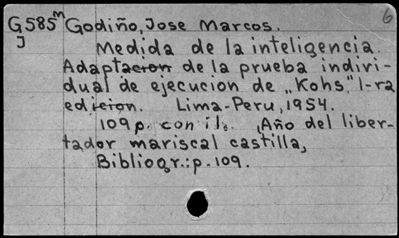 6
G585m Godiño, Jose Marcos.
J Medida de la inteligencia.
Adaptacion de la prueba indivi-
dual de ejecucion de „Kohs" 1-ra
edicion. Lima-Peru, 1954.
109p. con il. (Año del liber-
tador mariscal castilla,
Bibliogr.: p. 109.